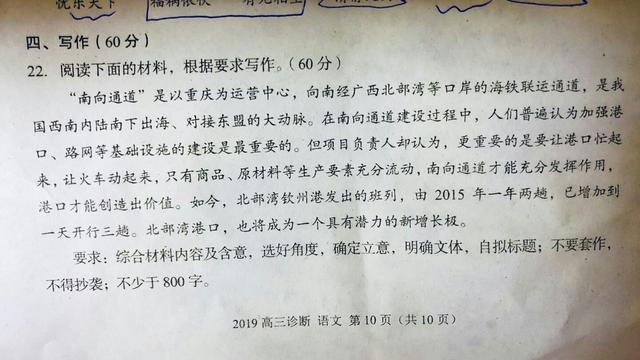 忧乐天下 祸福相依
四、写作(60分)
22. 阅读下面的材料,根据要求写作。(60分)
“南向通道”是以重庆为运营中心,向南经广西北部湾等口岸的海铁联运通道,是我
国西南内陆南下出海、对接东盟的大动脉。在南向通道建设过程中,人们普遍认为加强港
口、路网等基础设施的建设是最重要的。但项目负责人却认为,更重要的是要让港口忙起
来,让火车动起来,只有商品、原材料等生产要素充分流动,南向通道才能充分发挥作用,
港口才能创造出价值。如今,北部湾钦州港发出的班列,由 2015 年一年两趟,已增加到
一天开行三趟。北部湾港口,也将成为一个具有潜力的新增长极。
要求:综合材料内容及含意,选好角度,确定立意,明确文体,自拟标题;不要套作,
不得抄袭;不少于 800 字。
2019 高三诊断 语文 第 10 页(共 10 页)